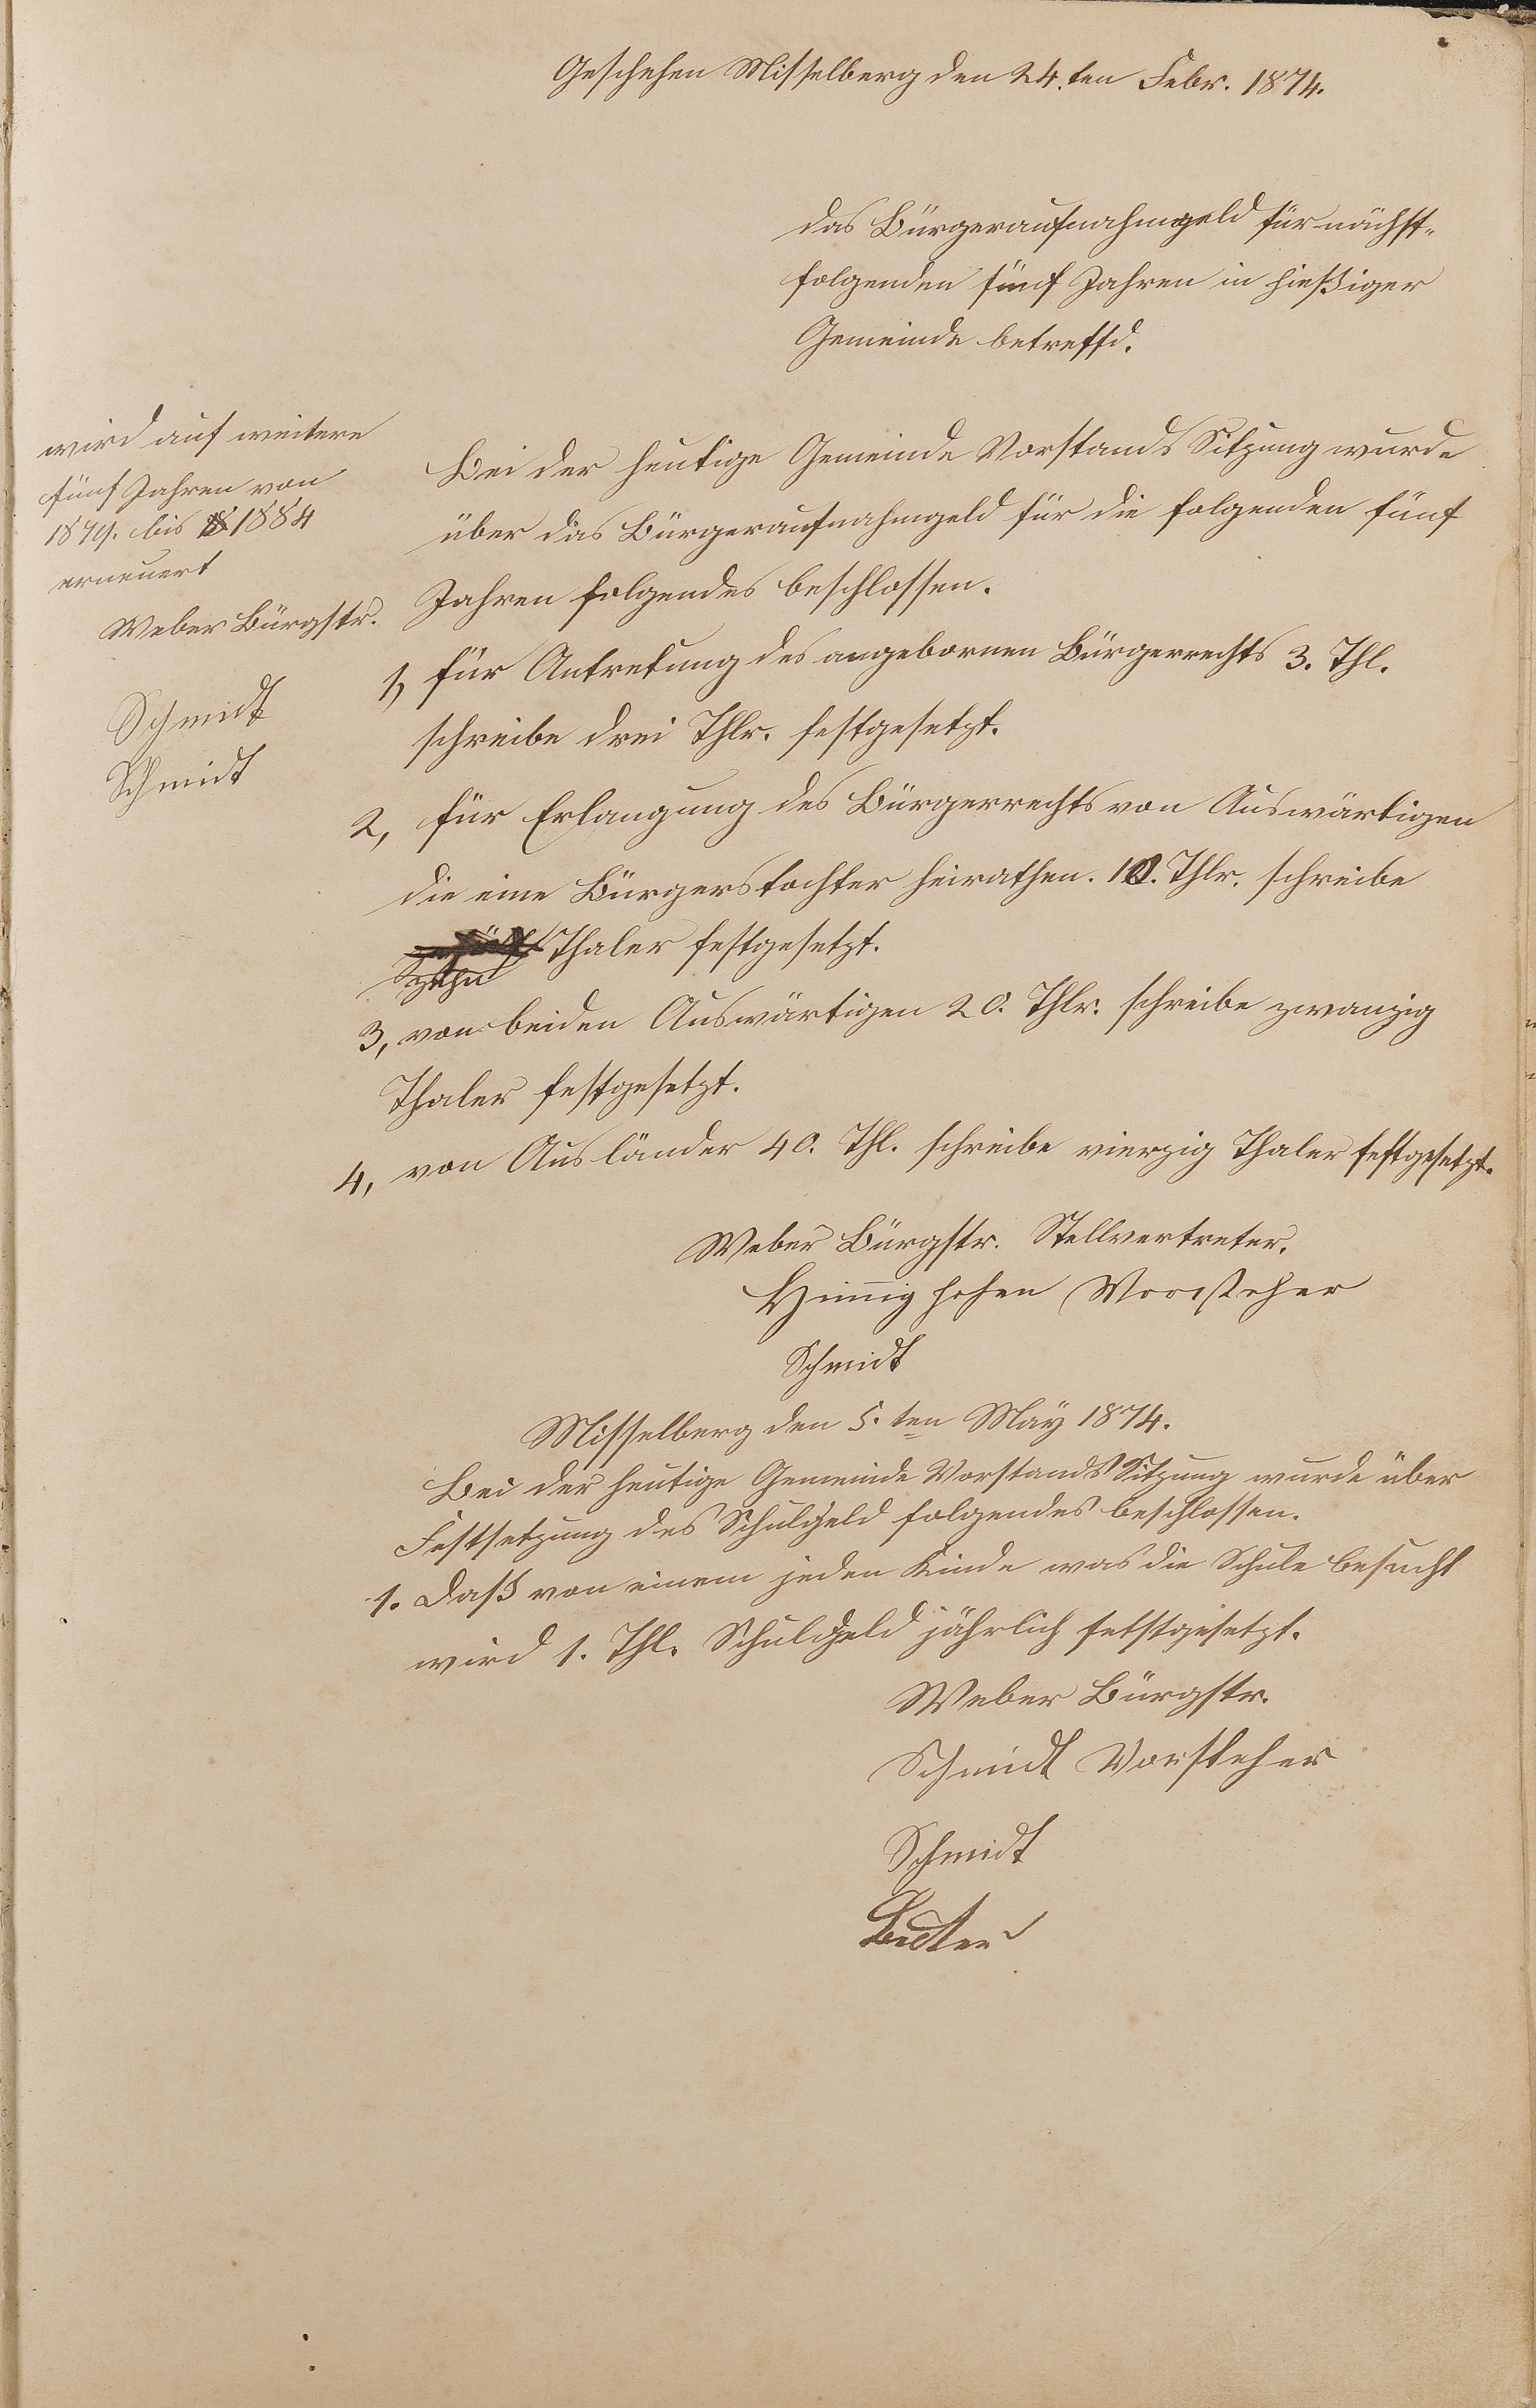 Geschehen Misselberg den 24.ten Febr. 1874.
das Bürgeraufnahmgeld für nächst-
folgenden fünf Jahren in hießiger
Gemeinde betreffd.
wird auf weitere
fünf Jahren von
1879. bis 1884
erneuert
Weber Bürgstr.
Schmidt
Schmidt
Bei der heutige Gemeinde Vorstands Sitzung wurde
über das Bürgeraufnahmgeld für die folgenden fünf
Jahren folgendes beschlossen.
1, für Antretung des angebornen Bürgerrechts 3. Thl.
schreibe drei Thlr. festgesetzt.
2, für Erlangung des Bürgerrechts von Auswärtigen
die eine Bürgerstochter heirathen. 10. Thlr. schreibe
Thaler festgesetzt.
zehn
3, von beiden Auswärtigen 20. Thlr. schreibe zwanzig
Thaler festgesetzt.
4, von Ausländer 40. Thl. schreibe vierzig Thaler festgesetzt.
Weber Bürgstr. Stellvertreter.
Hinnighofen Voorsteher
Schmidt
Misselberg den 5.ten May 1874.
Bei der heutige Gemeinde Vorstands Sitzung wurde über
Festsetzung des Schulgeld folgendes beschlossen.
1. Daß von einem jeden Kinde was die Schule besucht
wird 1. Thl. Schulgeld jährlich fetstgesetzt.
Weber Bürgstr.
Schmidt Vorsteher
Schmidt